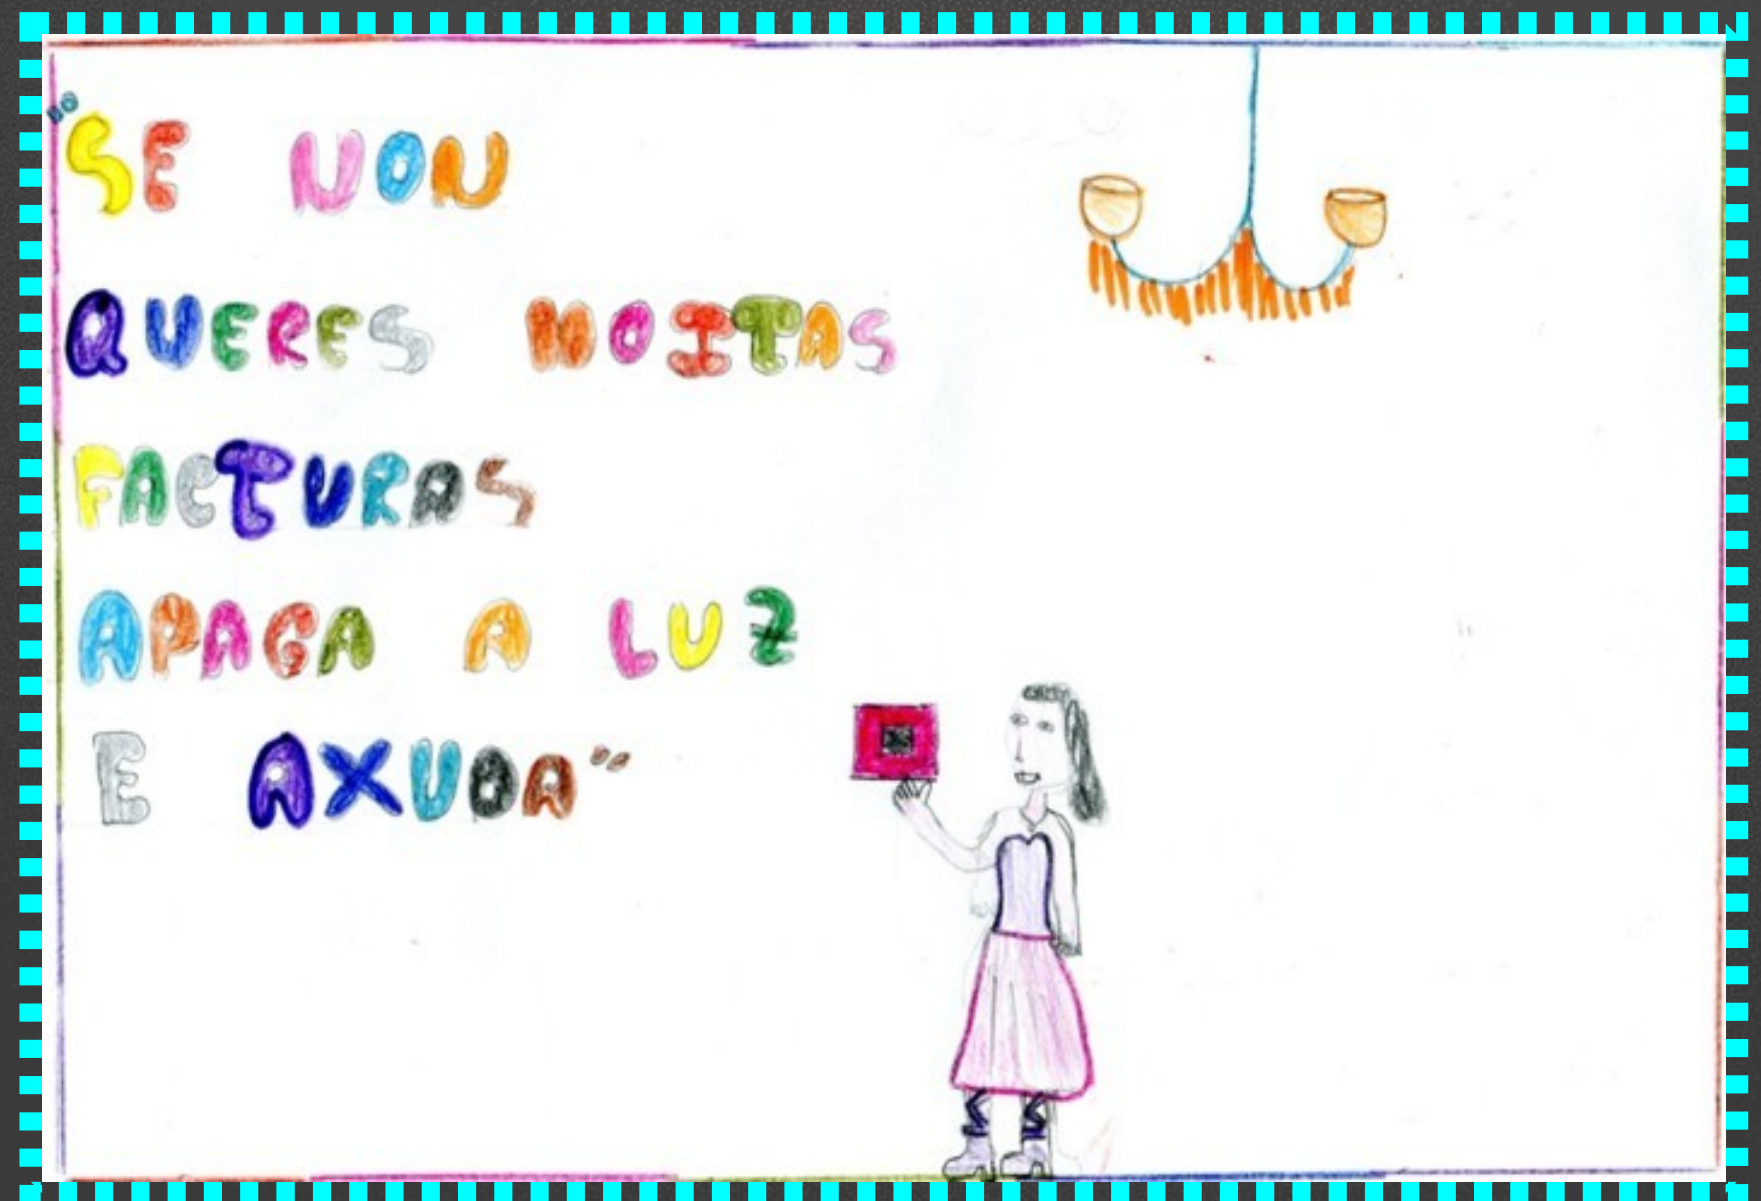 "SE NON
QUERES MOITAS
FACTURAS
APAGA A LUZ
E AXUDA"